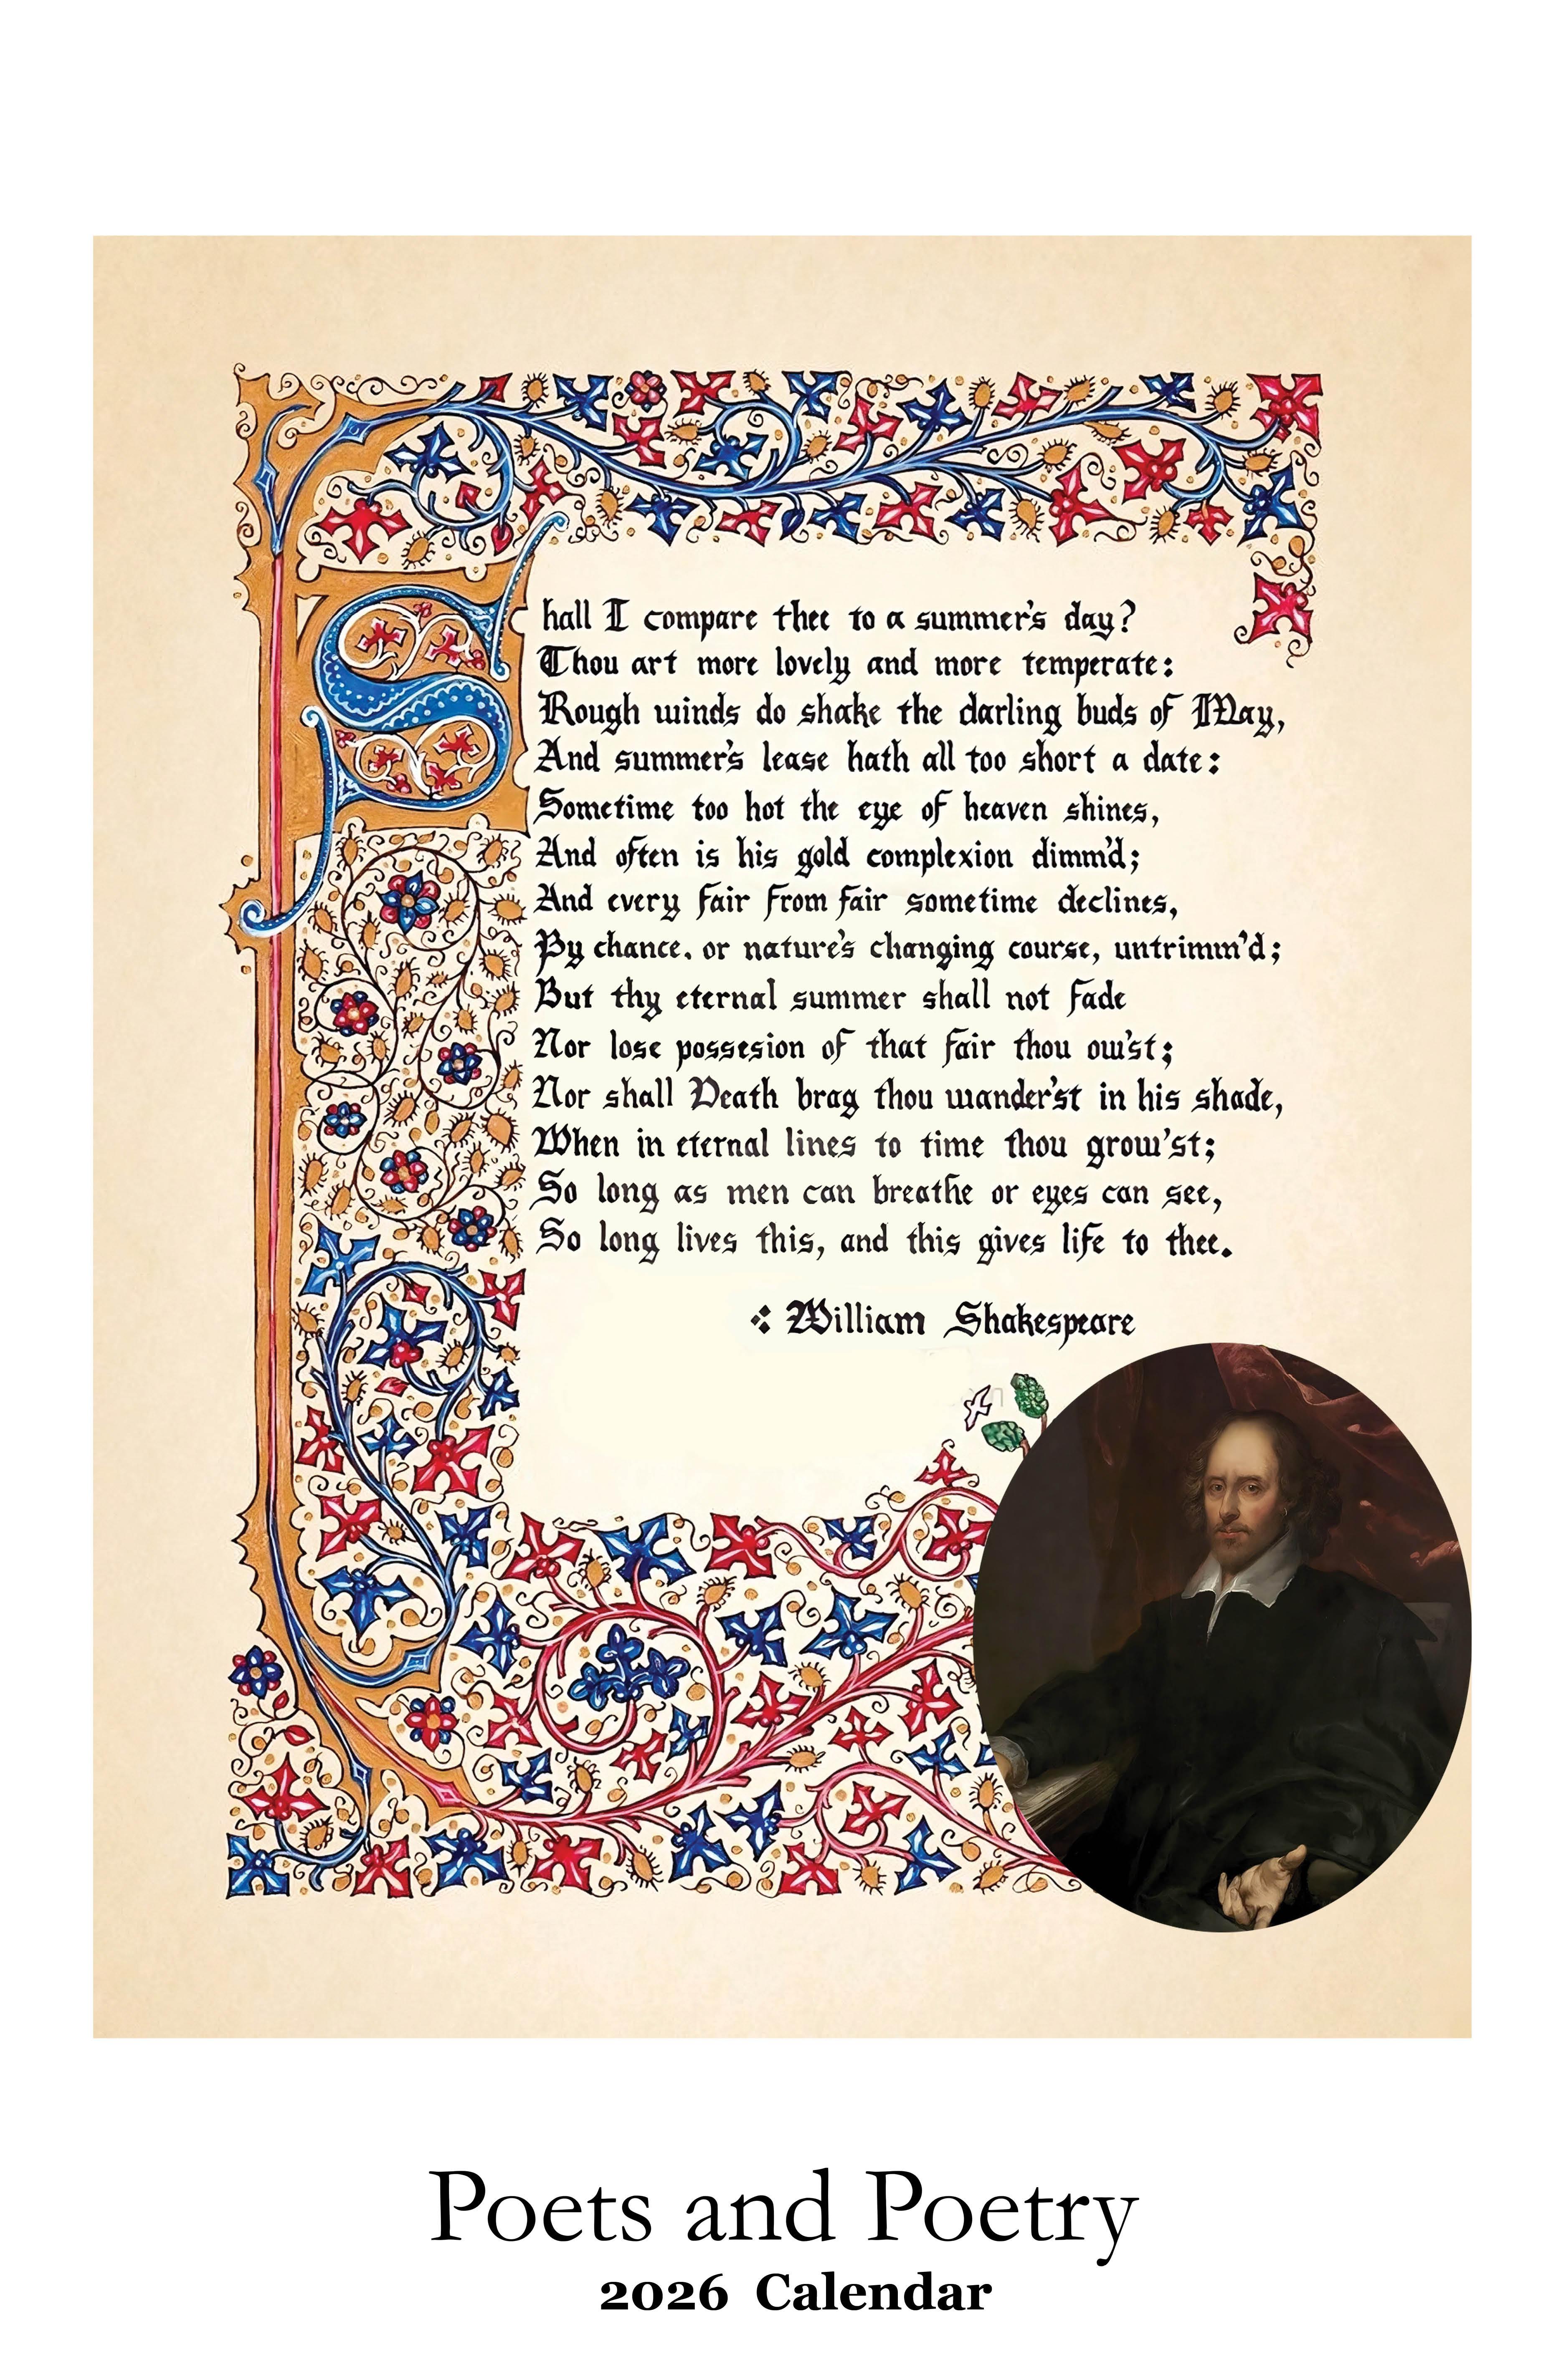 Shall I compare thee to a summer's day?
Thou art more lovely and more temperate:
Rough winds do shake the darling buds of May,
And summer's lease hath all too short a date:
Sometime too hot the eye of heaven shines,
And often is his gold complexion dimm'd;
And every fair from fair sometime declines,
By chance, or nature's changing course, untrimm'd;
But thy eternal summer shall not fade
Nor lose possesion of that fair thou ow'st;
Nor shall Death brag thou wander'st in his shade,
When in eternal lines to time thou grow'st;
So long as men can breathe or eyes can see,
So long lives this, and this gives life to thee.
William Shakespeare
Poets and Poetry
2026 Calendar